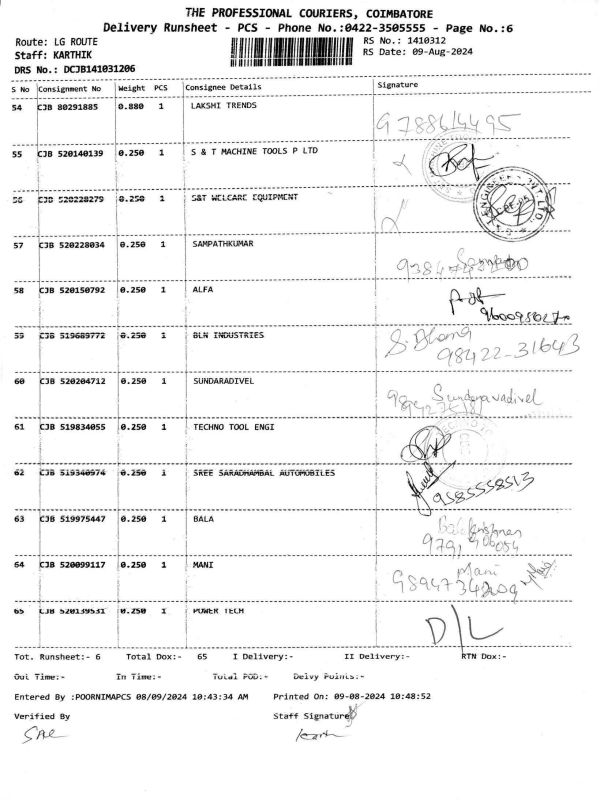 THE PROFESSIONAL COURIERS, COIMBATORE
Delivery Runsheet - PCS - Phone No.:0422-3505555 - Page No.:6
Route: LG ROUTE
RS No.: 1410312
Staff: KARTHIK
RS Date: 09-Aug-2024
DRS No.: DCJB141031206
S No Consignment No Weight PCS Consignee Details Signature
54 CJB 80291885 0.880 1 LAKSHI TRENDS
55 CJB 520140139 0.250 1 S & T MACHINE TOOLS P LTD
56 CJB 520228279 0.250 1 S&T WELCARE EQUIPMENT
57 CJB 520228034 0.250 1 SAMPATHKUMAR
58 CJB 520150792 0.250 1 ALFA
59 CJB 519689772 0.250 1 BLN INDUSTRIES
98422-31643
60 CJB 520204712 0.250 1 SUNDARADIVEL
Sundaravadivel
61 CJB 519834055 0.250 1 TECHNO TOOL ENGI
62 CJB 519340974 0.250 1 SREE SARADHAMBAL AUTOMOBILES
9585558513
63 CJB 519975447 0.250 1 BALA
64 CJB 520099117 0.250 1 MANI
Mani
65 CJB 520139531 0.250 1 POWER TECH
D/L
Tot. Runsheet:- 6 Total Dox:- 65 I Delivery:- II Delivery:- RTN Dox:-
Out Time:- In Time:- Total POD:- Delvy Points:-
Entered By :POORNIMAPCS 08/09/2024 10:43:34 AM Printed On: 09-08-2024 10:48:52
Verified By Staff Signature